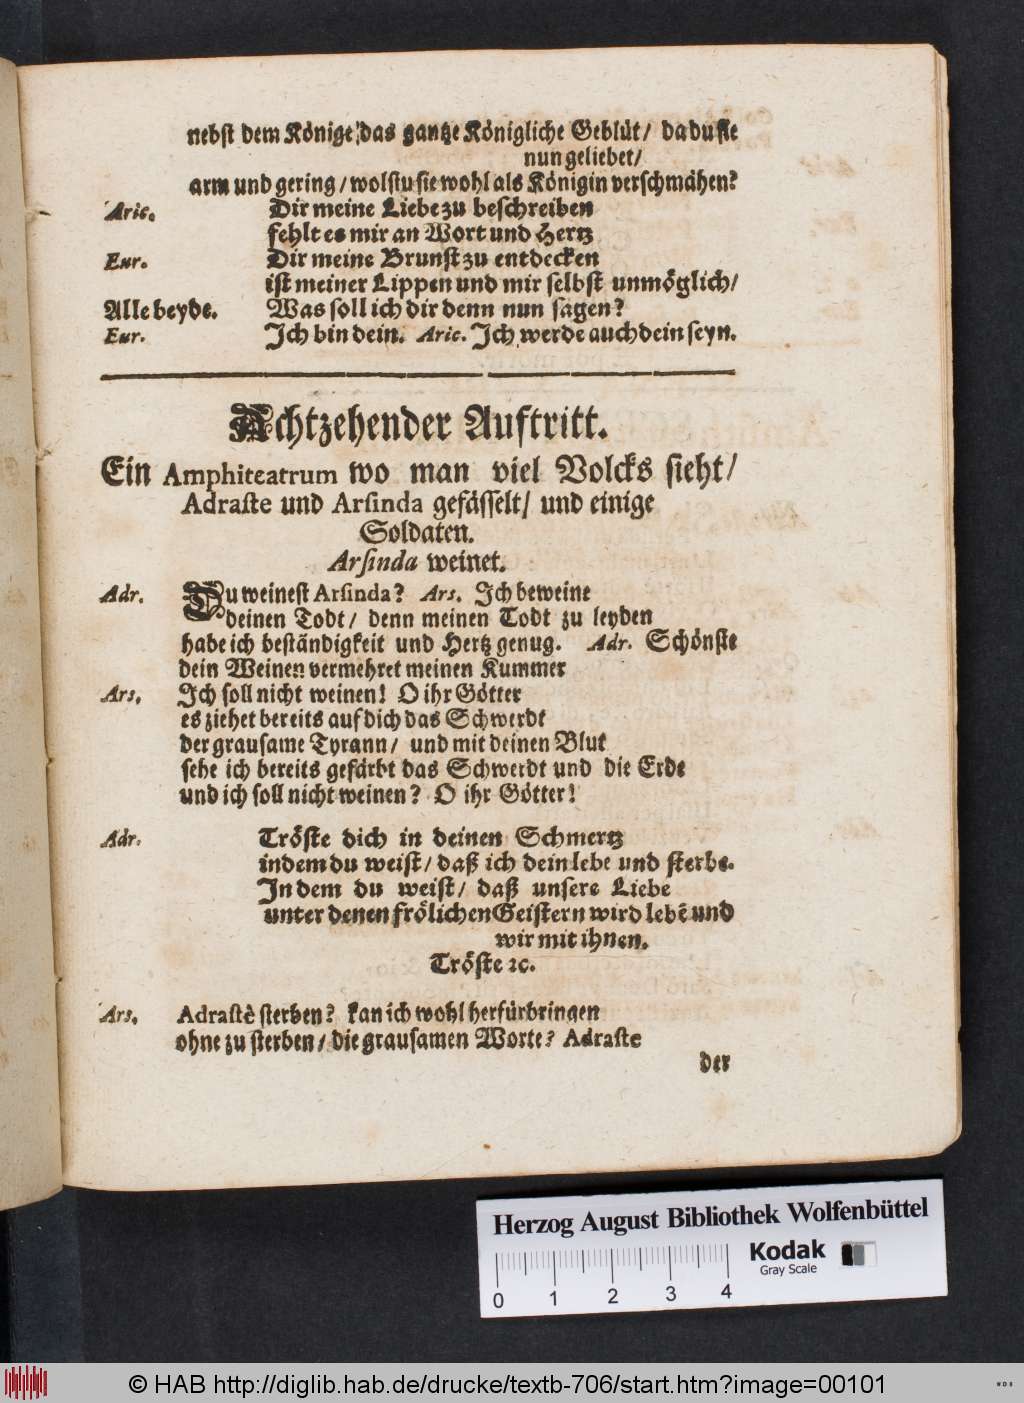 nebst dem Könige das gantze Königliche Geblüt/ da du sie
nun geliebet/
arm und gering/ wolstu sie wohl als Königin verschmähen?
Aric. Dir meine Liebe zu beschreiben
fehlt es mir an Wort und Hertz
Eur. Dir meine Brunst zu entdecken
ist meiner Lippen und mir selbst unmöglich/
Alle beyde. Was soll ich dir denn nun sagen?
Eur. Ich bin dein. Aric. Ich werde auch dein seyn.
Achtzehender Auftritt.
Ein Amphiteatrum wo man viel Volcks sieht/
Adraste und Arsinda gefässelt/ und einige
Soldaten.
Arsinda weinet.
Adr. Du weinest Arsinda? Ars. Ich beweine
deinen Todt/ denn meinen Todt zu leyden
habe ich beständigkeit und Hertz genug. Adr. Schönste
dein Weinen vermehret meinen Kummer
Ars. Ich soll nicht weinen! O ihr Götter
es ziehet bereits auf dich das Schwerdt
der grausame Tyrann/ und mit deinen Blut
sehe ich bereits gefärbt das Schwerdt und die Erde
und ich soll nicht weinen? O ihr Götter!
Adr. Tröste dich in deinen Schmertz
indem du weist/ daß ich dein lebe und sterbe.
In dem du weist/ daß unsere Liebe
unter denen frölichen Geistern wird lebē und
wir mit ihnen.
Tröste ꝛc.
Ars. Adrastè sterben? kan ich wohl herfürbringen
ohne zu sterben/ die grausamen Worte? Adraste
der
Herzog August Bibliothek Wolfenbüttel
Kodak
Gray Scale
0 1 2 3 4
© HAB http://diglib.hab.de/drucke/textb-706/start.htm?image=00101